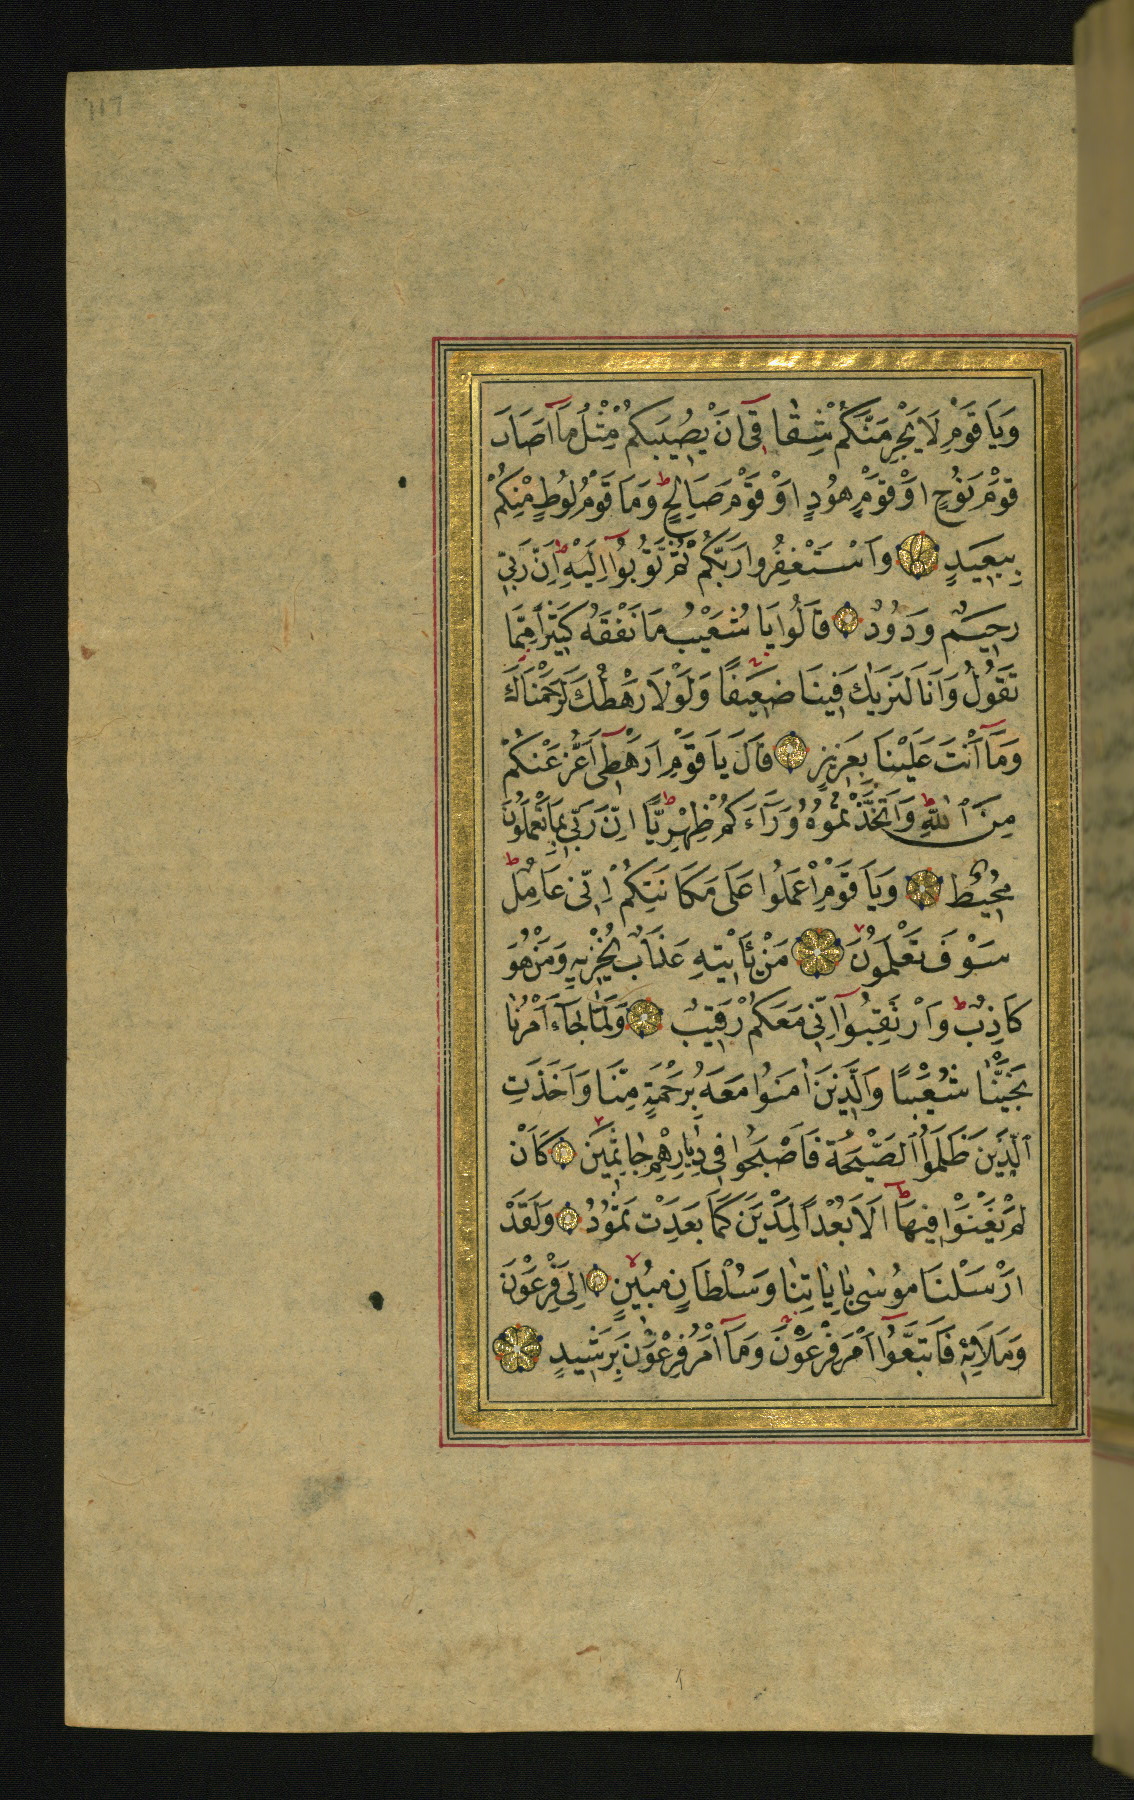 وَيَا قَوْمِ لَا يَجْرِمَنَّكُمْ شِقَاقِى آنْ يُصِيبَكُمْ مِثْلُ مَا اَصَابَ
قَوْمَ نُوحٍ اَوْ قَوْمَ هُودٍ اَوْ قَوْمَ صَالِحٍ وَمَا قَوْمُ لُوطٍ مِنْكُمْ
بِبَعِيدٍ وَاسْتَغْفِرُوا رَبَّكُمْ ثُمَّ تُوبُوا اِلَيْهِ اِنَّ رَبِّى
رَحِيمٌ وَدُودٌ قَالُوا يَا شُعَيْبُ مَا نَفْقَهُ كَثِيرًا مِمَّا
تَقُولُ وَاِنَّا لَنَرٰيكَ فِينَا ضَعِيفًا وَلَوْلَا رَهْطُكَ لَرَجَمْنَاكَ
وَمَا اَنْتَ عَلَيْنَا بِعَزِيزٍ قَالَ يَا قَوْمِ اَرَهْطِى اَعَزُّ عَلَيْكُمْ
مِنَ ٱللّٰهِ وَاتَّخَذْتُمُوهُ وَرَآءَكُمْ ظِهْرِيًّا اِنَّ رَبِّى بِمَا تَعْمَلُونَ
مُحِيطٌ وَيَا قَوْمِ اعْمَلُوا عَلَى مَكَانَتِكُمْ اِنِّى عَامِلٌ
سَوْفَ تَعْلَمُونَ مَنْ يَأْتِيهِ عَذَابٌ يُخْزِيهِ وَمَنْ هُوَ
كَاذِبٌ وَارْتَقِبُوا اِنِّى مَعَكُمْ رَقِيبٌ وَلَمَّا جَآءَ اَمْرُنَا
نَجَّيْنَا شُعَيْبًا وَالَّذِينَ اٰمَنُوا مَعَهُ بِرَحْمَةٍ مِنَّا وَاَخَذَتِ
ٱلَّذِينَ ظَلَمُوا ٱلصَّيْحَةُ فَاَصْبَحُوا فِى دِيَارِهِمْ جَاثِمِينَ كَاَنْ
لَمْ يَغْنَوْا فِيهَا اَلَا بُعْدًا لِمَدْيَنَ كَمَا بَعِدَتْ ثَمُودُ وَلَقَدْ
اَرْسَلْنَا مُوسٰى بِاٰيَاتِنَا وَسُلْطَانٍ مُبِينٍ اِلٰى فِرْعَوْنَ
وَمَلَائِهِ فَاتَّبَعُوا اَمْرَ فِرْعَوْنَ وَمَا اَمْرُ فِرْعَوْنَ بِرَشِيدٍ